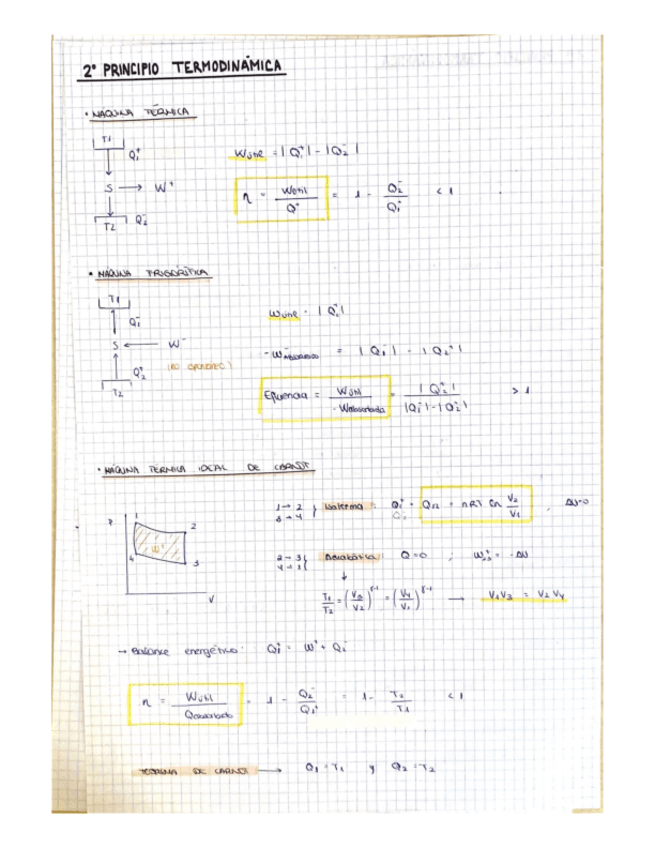 2º PRINCIPIO TERMODINÁMICA
• MÁQUINA TÉRMICA
T1
Q1+
S → W+
T2 Q2-
Wútil = |Q1+| - |Q2-|
η = Wútil / Q+ = 1 - Q2- / Q1+ < 1
• MÁQUINA FRIGORÍFICA
T1
Q1-
S ← W-
Q2+
T2
Wútil = |Q2+|
- Wabsorbido = |Q1-| - |Q2+|
Eficiencia = Wútil / - Wabsorbida = |Q2+| / |Q1-| - |Q2+| > 1
• MÁQUINA TÉRMICA IDEAL DE CARNOT
P 1 2 3 4 W+ V
1 → 2
3 → 4 } Isoterma: Q1+ = Q12 = nRT ln V2 / V1 , ΔU=0
2 → 3
4 → 1 } Adiabática: Q=0 ; W23+ = -ΔU
↓
T1 / T2 = (V3 / V2)^γ-1 = (V4 / V1)^γ-1 → V1V3 = V2V4
→ Balance energético: Q1+ = W+ + Q2-
η = Wútil / Qabsorbido = 1 - Q2- / Q1+ = 1 - T2 / T1 < 1
TEOREMA DE CARNOT → Q1 = T1 y Q2 = T2